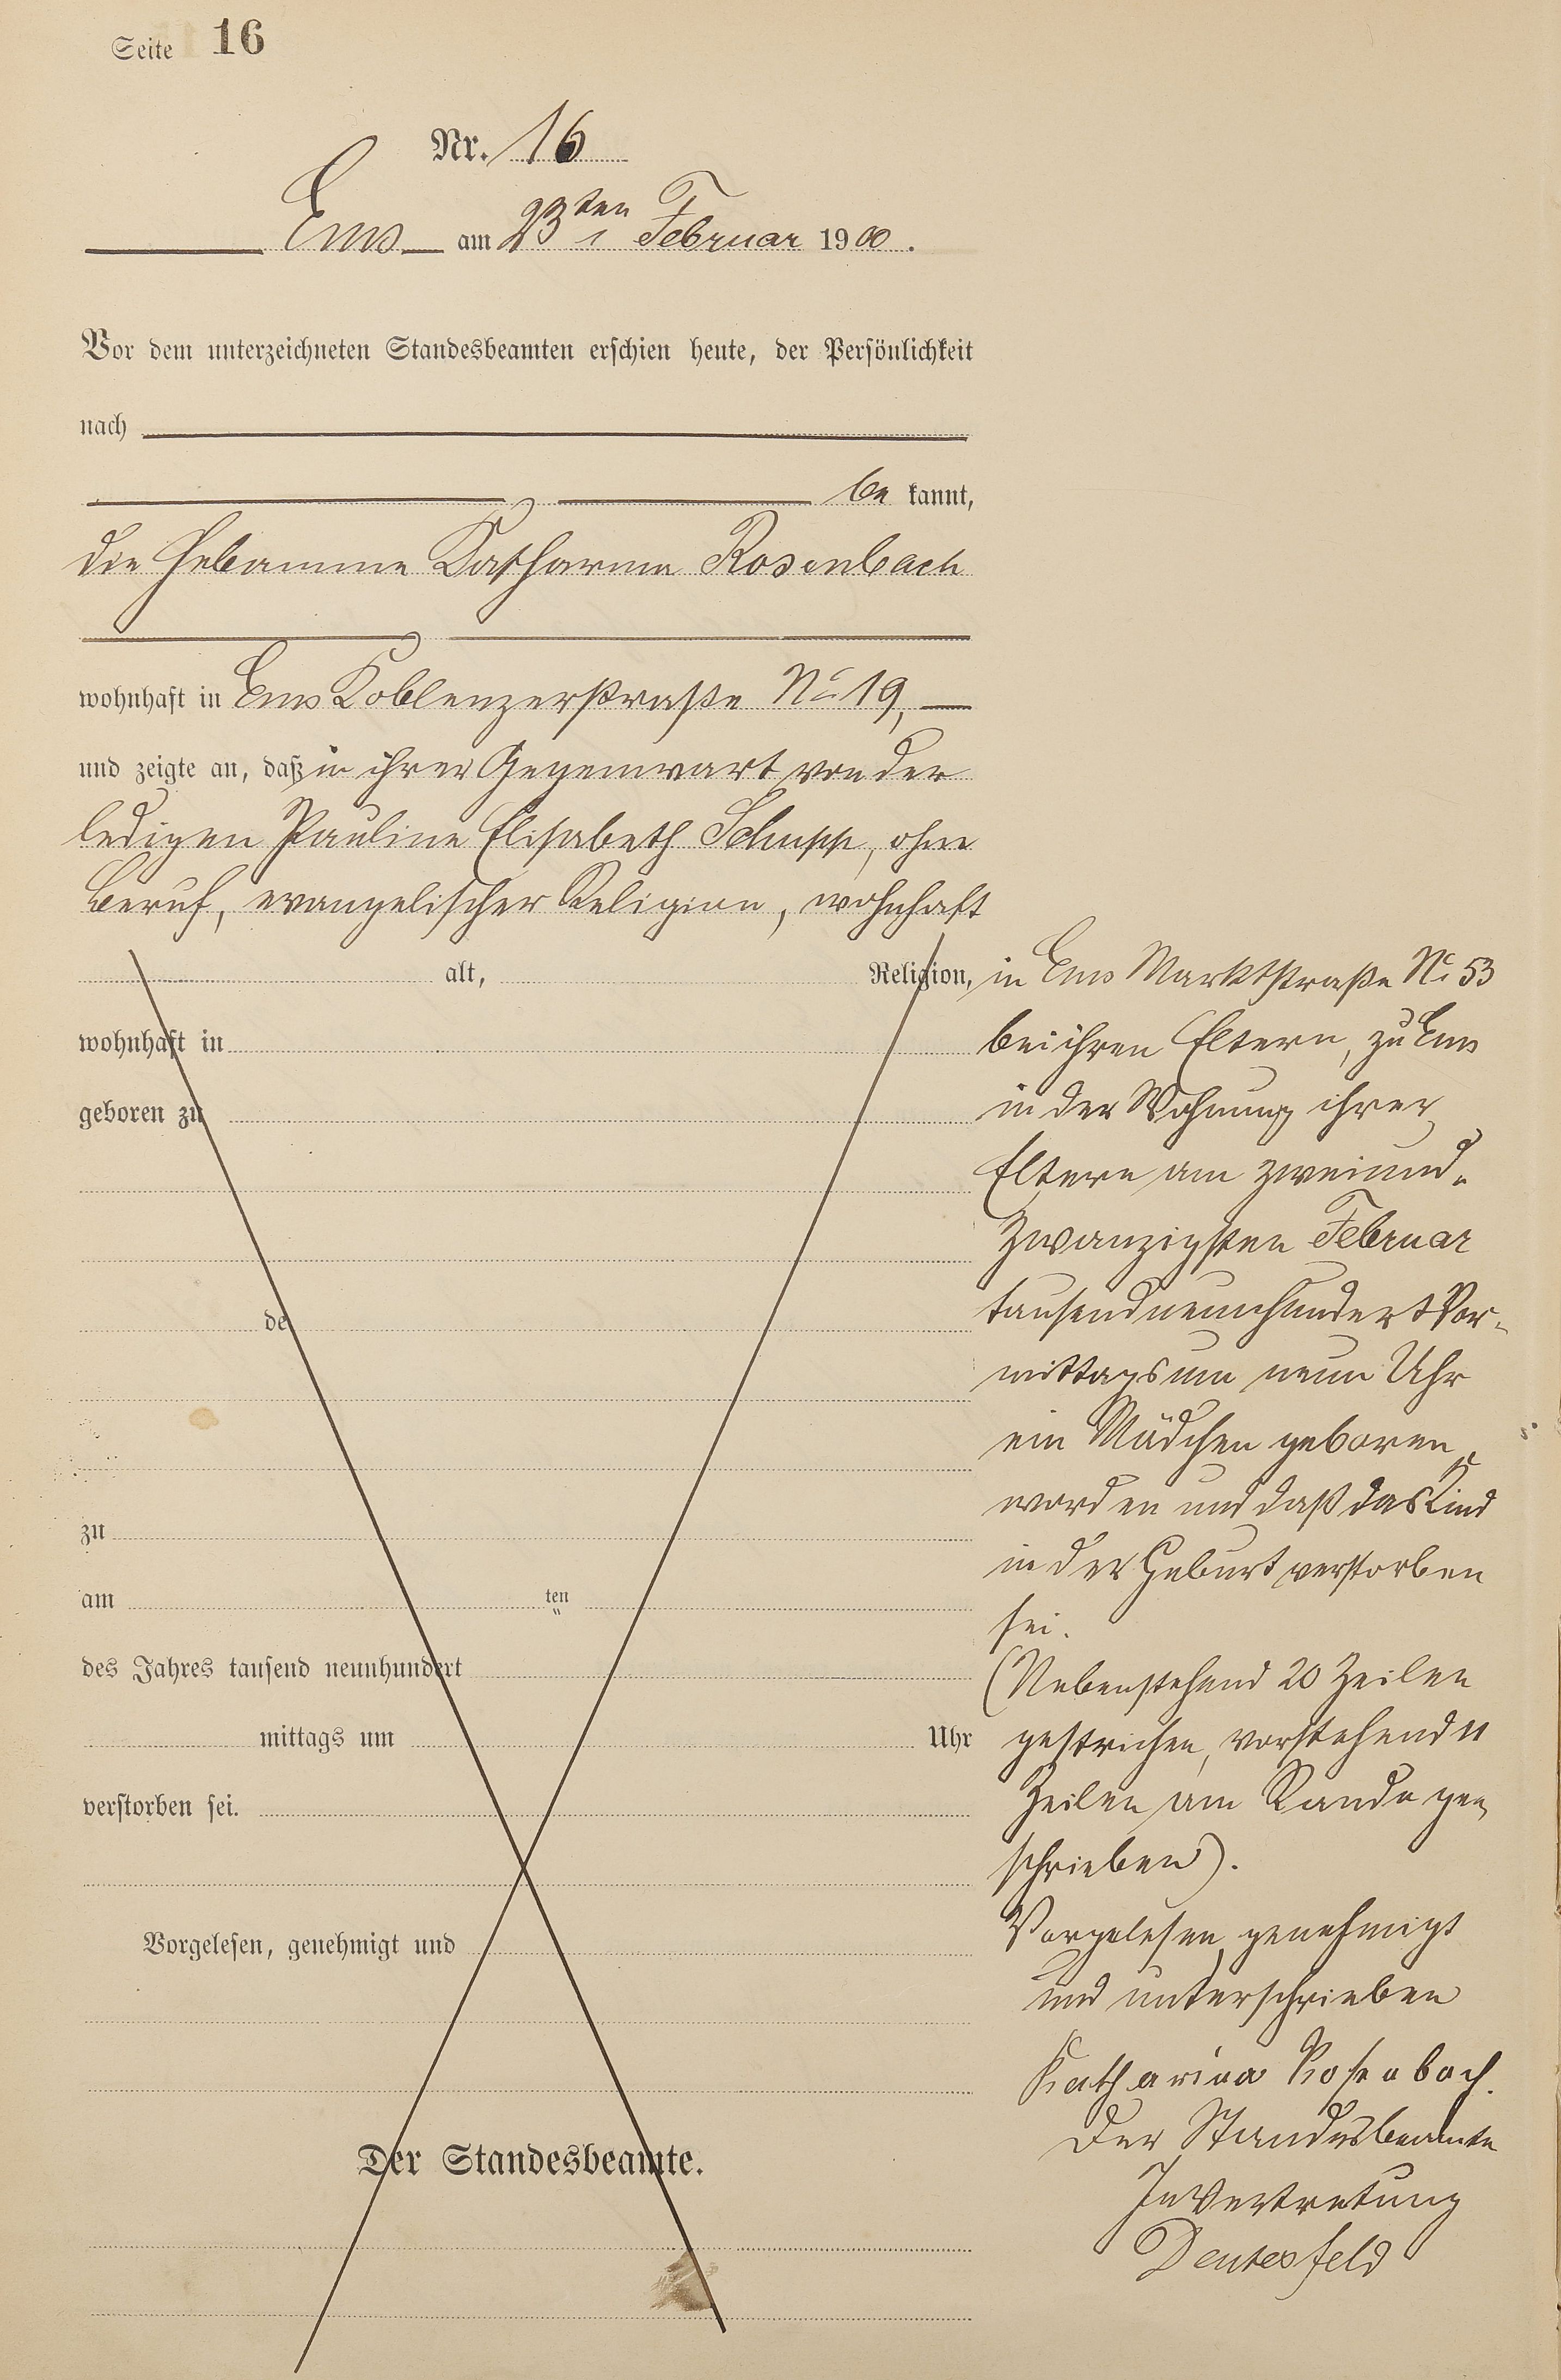 Seite 16
Nr. 16
Ems am 23ten Februar 1900.
Vor dem unterzeichneten Standesbeamten erschien heute, der Persönlichkeit
nach
be kannt,
die Hebamme Katharina Rosenbach
wohnhaft in Ems Koblenzerstraße No 19,
und zeigte an, daß in ihrer Gegenwart von der
ledigen Pauline Elisabeth Schupp, ohne
Beruf, evangelischer Religion, wohnhaft
alt, Religion,
wohnhaft in
geboren zu
de
zu
am ten
des Jahres tausend neunhundert
mittags um Uhr
verstorben sei.
Vorgelesen, genehmigt und
Der Standesbeamte.
in Ems Marktstraße No 53
bei ihren Eltern, zu Ems
in der Wohnung ihrer
Eltern am zweiund-
zwanzigsten Februar
tausendneunhundert Vor-
mittags um neun Uhr
ein Mädchen geboren
worden und daß das Kind
in der Geburt verstorben
sei.
(Nebenstehend 20 Zeilen
gestrichen, vorstehend 11
Zeilen am Rande ge-
schrieben).
Vorgelesen, genehmigt
und unterschrieben
Katharina Rosenbach.
Der Standesbeamte
In Vertretung